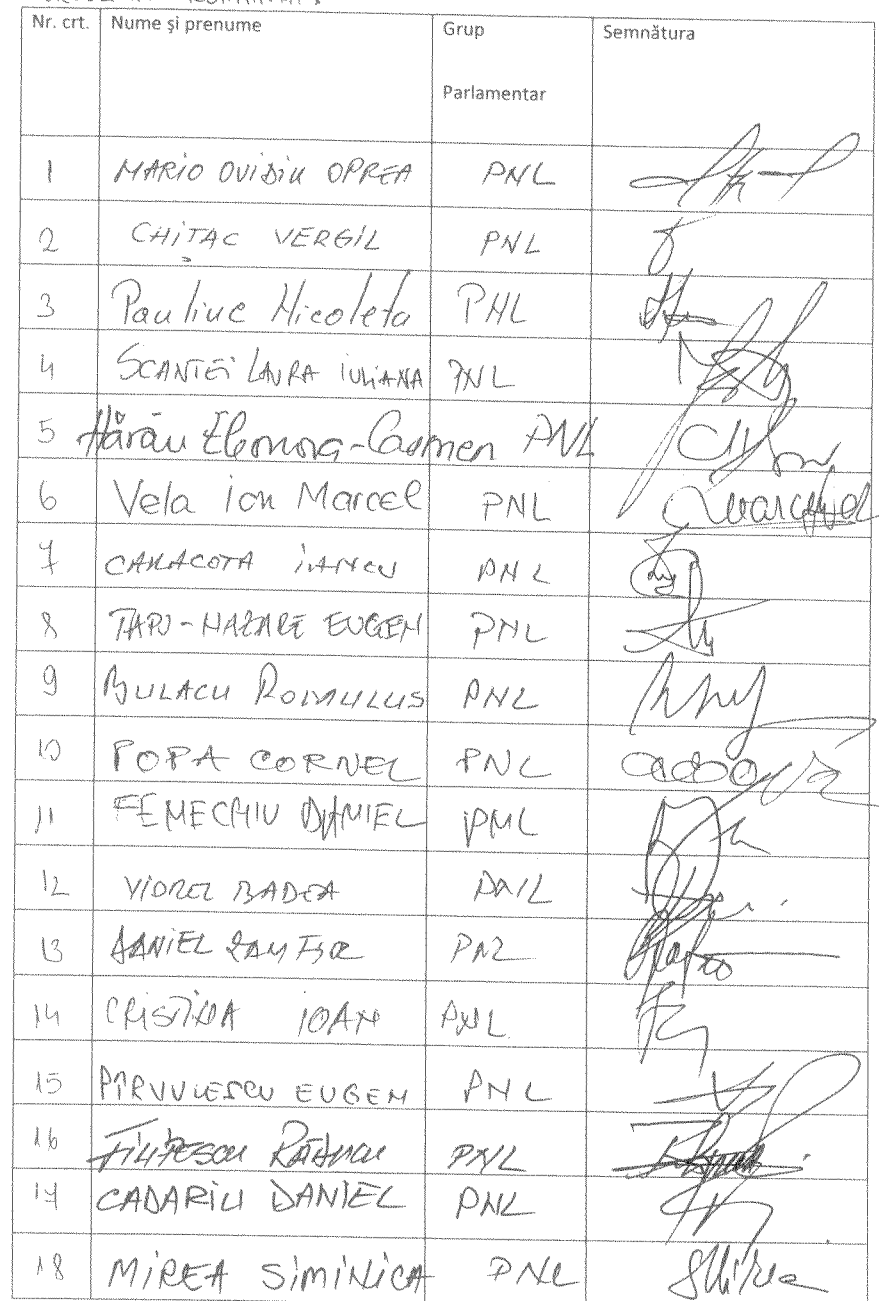 Nr. crt. Nume și prenume Grup Parlamentar Semnătura
1 MARIO OVIDIU OPREA PNL
2 CHIȚAC VERGIL PNL
3 Pauliuc Nicoleta PNL
4 SCANTEI LAURA IULIANA PNL
5 Hărău Eleonora-Carmen PNL
6 Vela Ion Marcel PNL
7 CARACOTA IANCU PNL
8 ȚAPU-NAZARE EUGEN PNL
9 BULACU ROMULUS PNL
10 POPA CORNEL PNL
11 FENECHIU DANIEL PNL
12 VIOREL BADEA PNL
13 DANIEL ZAMFIR PNL
14 CRISTINA IOAN PNL
15 PÎRVULESCU EUGEN PNL
16 FILIPESCU RĂDUCU PNL
17 CADARIU DANIEL PNL
18 MIREA SIMINICA PNL